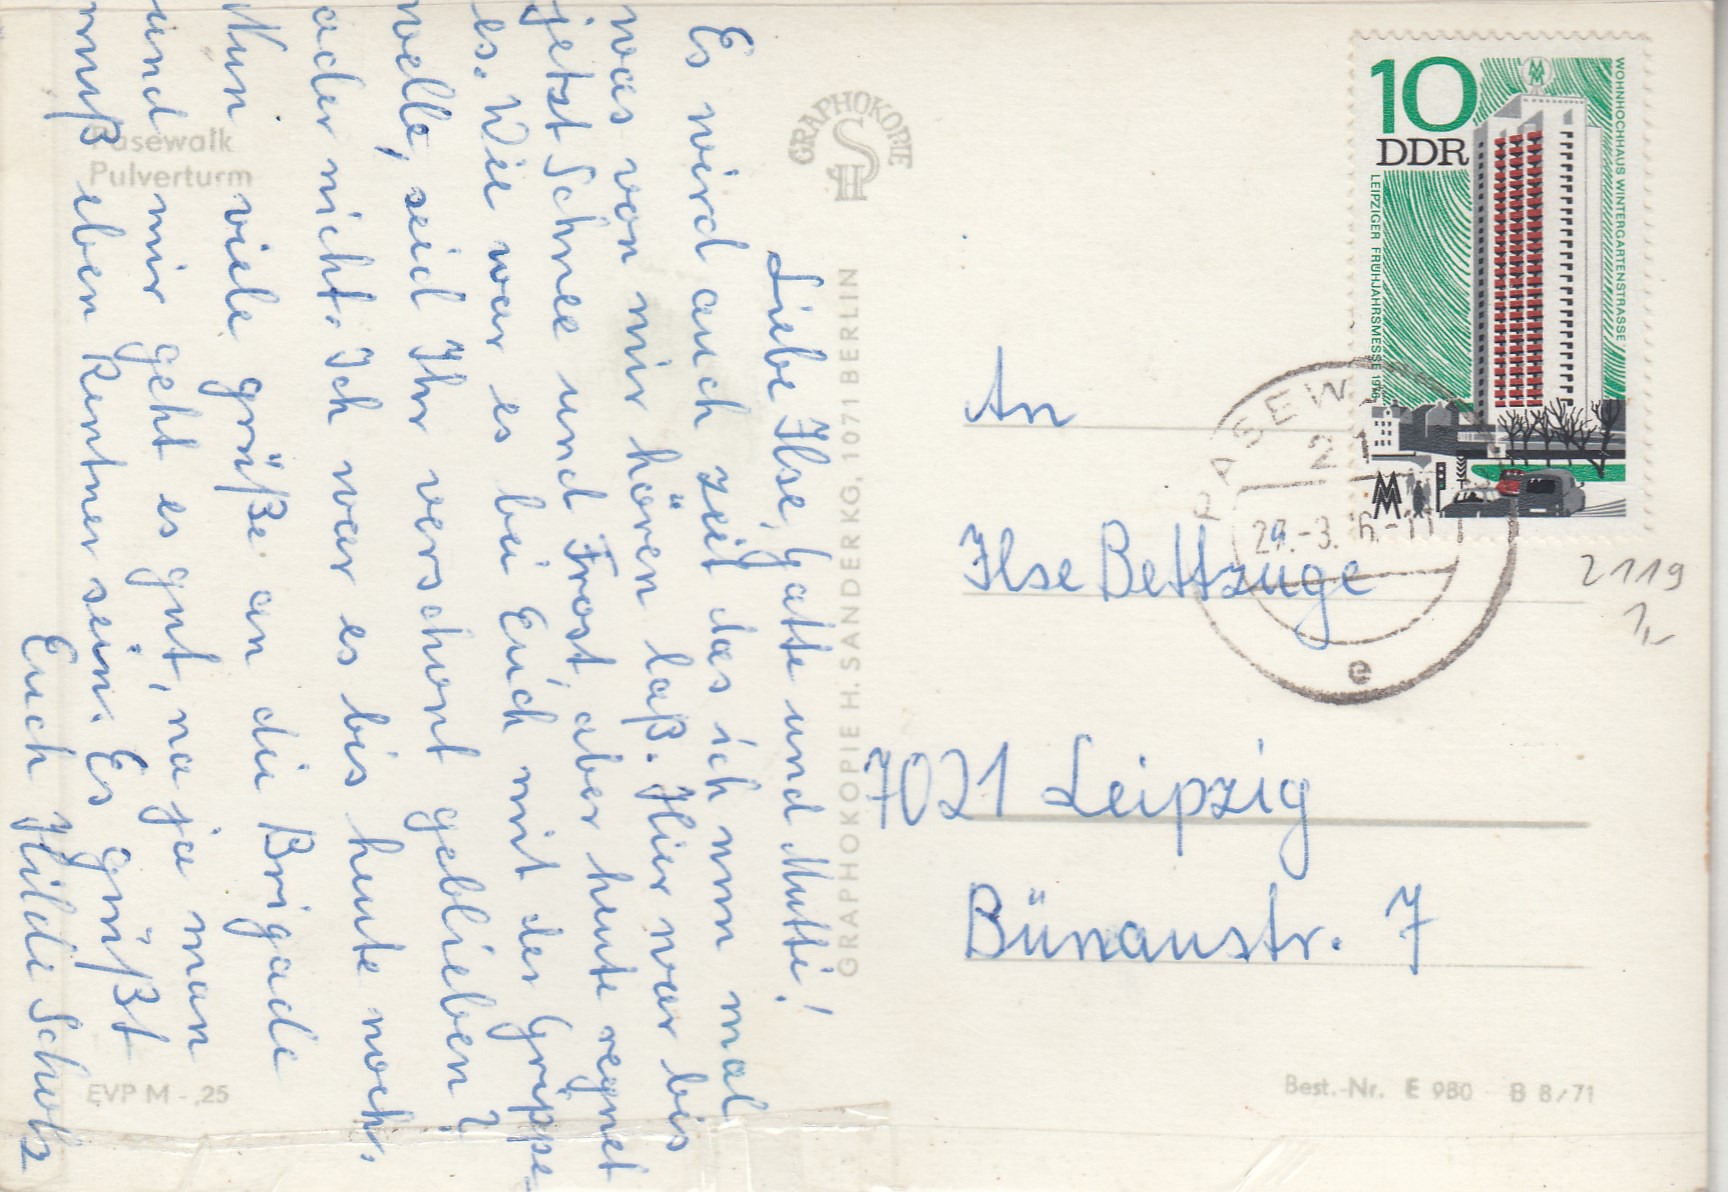 Liebe Ilse, Gatte und Mutti!
Es wird auch zeit das ich nun mal
was von mir hören laß. Hier war bis
jetzt Schnee und Frost, aber heute regnet
es. Wie war es bei Euch mit der Grippe
welle, seid Ihr verschont geblieben?
oder nicht. Ich war es bis heute noch.
Nun viele grüße an die Brigade
und mir geht es gut, na ja man
muß eben Rentner sein. Es grüßt
Euch Hildi Scholz
Pasewalk
Pulverturm
EVP M -,25
GRAPHOKOPIE
HS
GRAPHOKOPIE H. SANDER KG, 1071 BERLIN
10
DDR
WOHNHOCHHAUS WINTERGARTENSTRASSE
LEIPZIGER FRÜHJAHRSMESSE 1976
MM
PASEW
21
-3.
e
2119
An
Ilse Bettzüge
7021 Leipzig
Bünaustr. 7
Best.-Nr. E 980 B 8/71